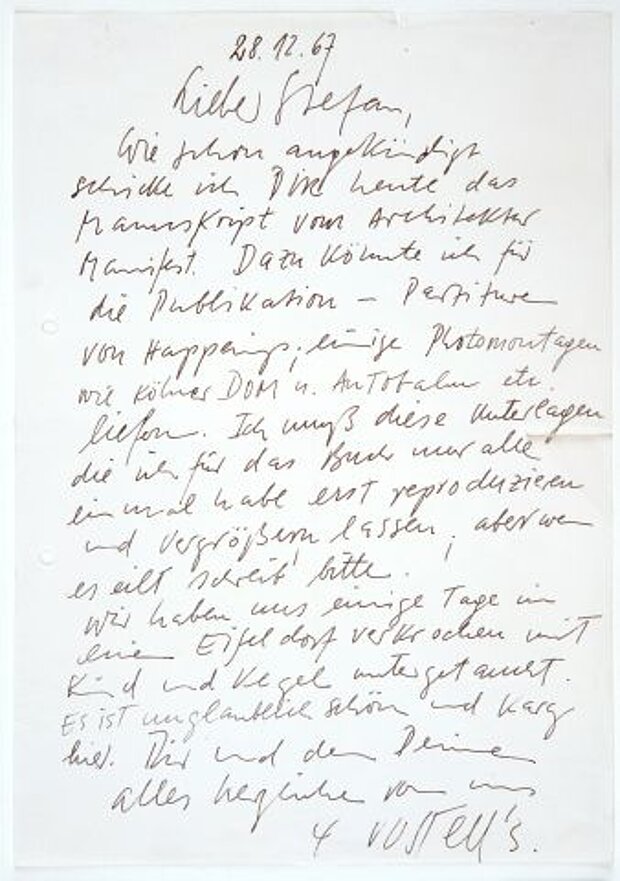 28.12.67
Lieber Stefan,
Wie schon angekündigt
schicke ich Dir heute das
Manuskript vom Architektur
Manifest. Dazu könnte ich für
die Publikation – Partituren
von Happenings, einige Photomontagen
wie Kölner DOM u. Autobahn etc.
liefern. Ich muß diese Unterlagen
die ich für das Buch nur alle
einmal habe erst reproduzieren
und vergrößern lassen, aber wenn
es eilt schreib bitte.
Wir haben uns einige Tage in
einem Eifeldorf verkrochen mit
Kind und Kegel untergetaucht.
Es ist unglaublich schön und karg
hier. Dir und den Deinen
alles herzliche von uns
4 Vostell's.